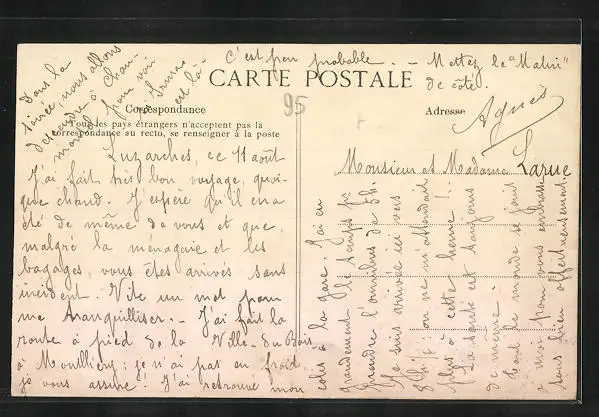 C'est peu probable. — Mettez le "Matin"
de côté.
Dans la
soirée, nous allons
descendre à Chau-
montel pour voir
si Irma
est là —
CARTE POSTALE
95
Correspondance
Adresse
Tous les pays étrangers n'acceptent pas la
correspondance au recto, se renseigner à la poste
Luzarches, ce 11 août
J'ai fait très bon voyage, quoi-
que chaud. J'espère qu'il en a
été de même de vous et que,
malgré la ménagerie et les
bagages, vous êtes arrivés sans
incident. Vite un mot pour
me tranquilliser. — J'ai fait la
route à pied de la Ville-du-Bois
à Montlhéry ; je n'ai pas eu froid,
je vous assure ! J'ai retrouvé mon
colis à la gare. J'ai eu
grandement le temps de
prendre l'omnibus de 5h.
Je suis arrivée ici vers
8h ; on ne m'attendait
plus à cette heure !
La santé est toujours
de même.
Tout le monde se joint
à moi pour vous embrasser
tous bien affectueusement.
Agnès
Monsieur et Madame Larue